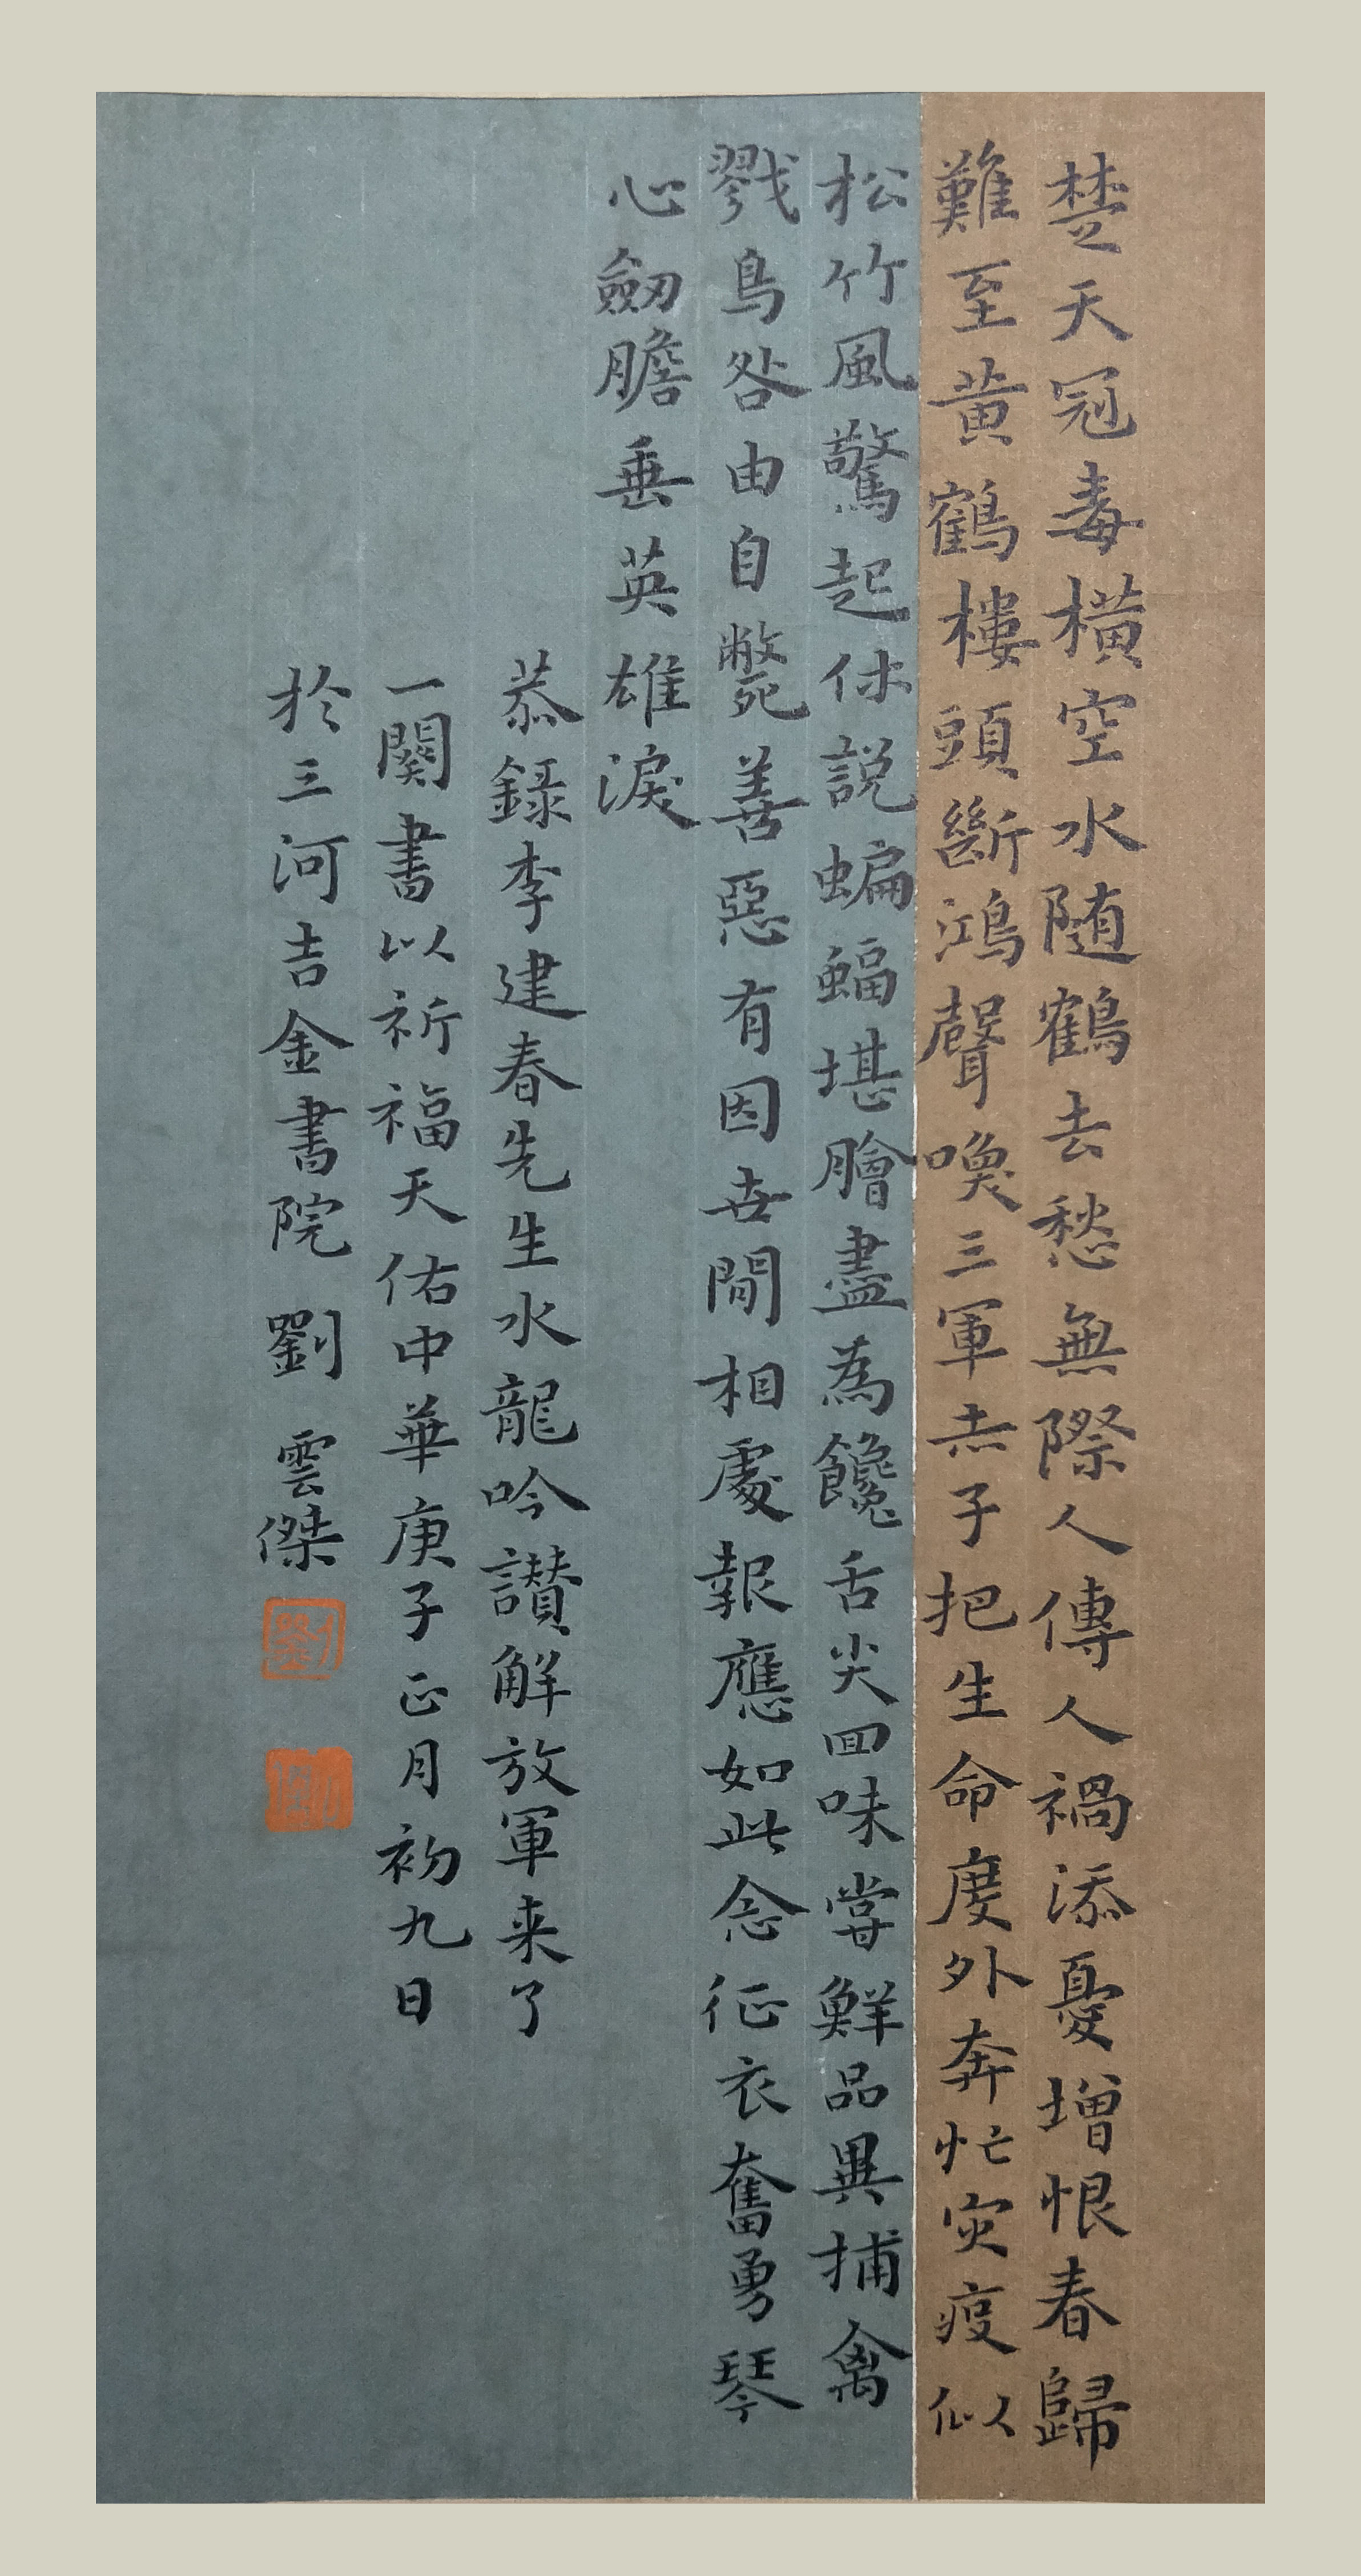 楚天冠毒橫空水随鶴去愁無際人傳人禍添憂增恨春歸
難至黄鶴樓頭斷鴻聲喚三軍赤子把生命度外奔忙灾疫似
松竹風驚起休説蝙蝠堪膾盡為饞舌尖回味嘗鮮品異捕禽
戮鳥咎由自斃善惡有因世間相處報應如此念征衣奮勇琴
心劔膽垂英雄淚
恭錄李建春先生水龍吟讃解放軍来了
一闋書以祈福天佑中華庚子正月初九日
於三河吉金書院 劉雲傑
劉